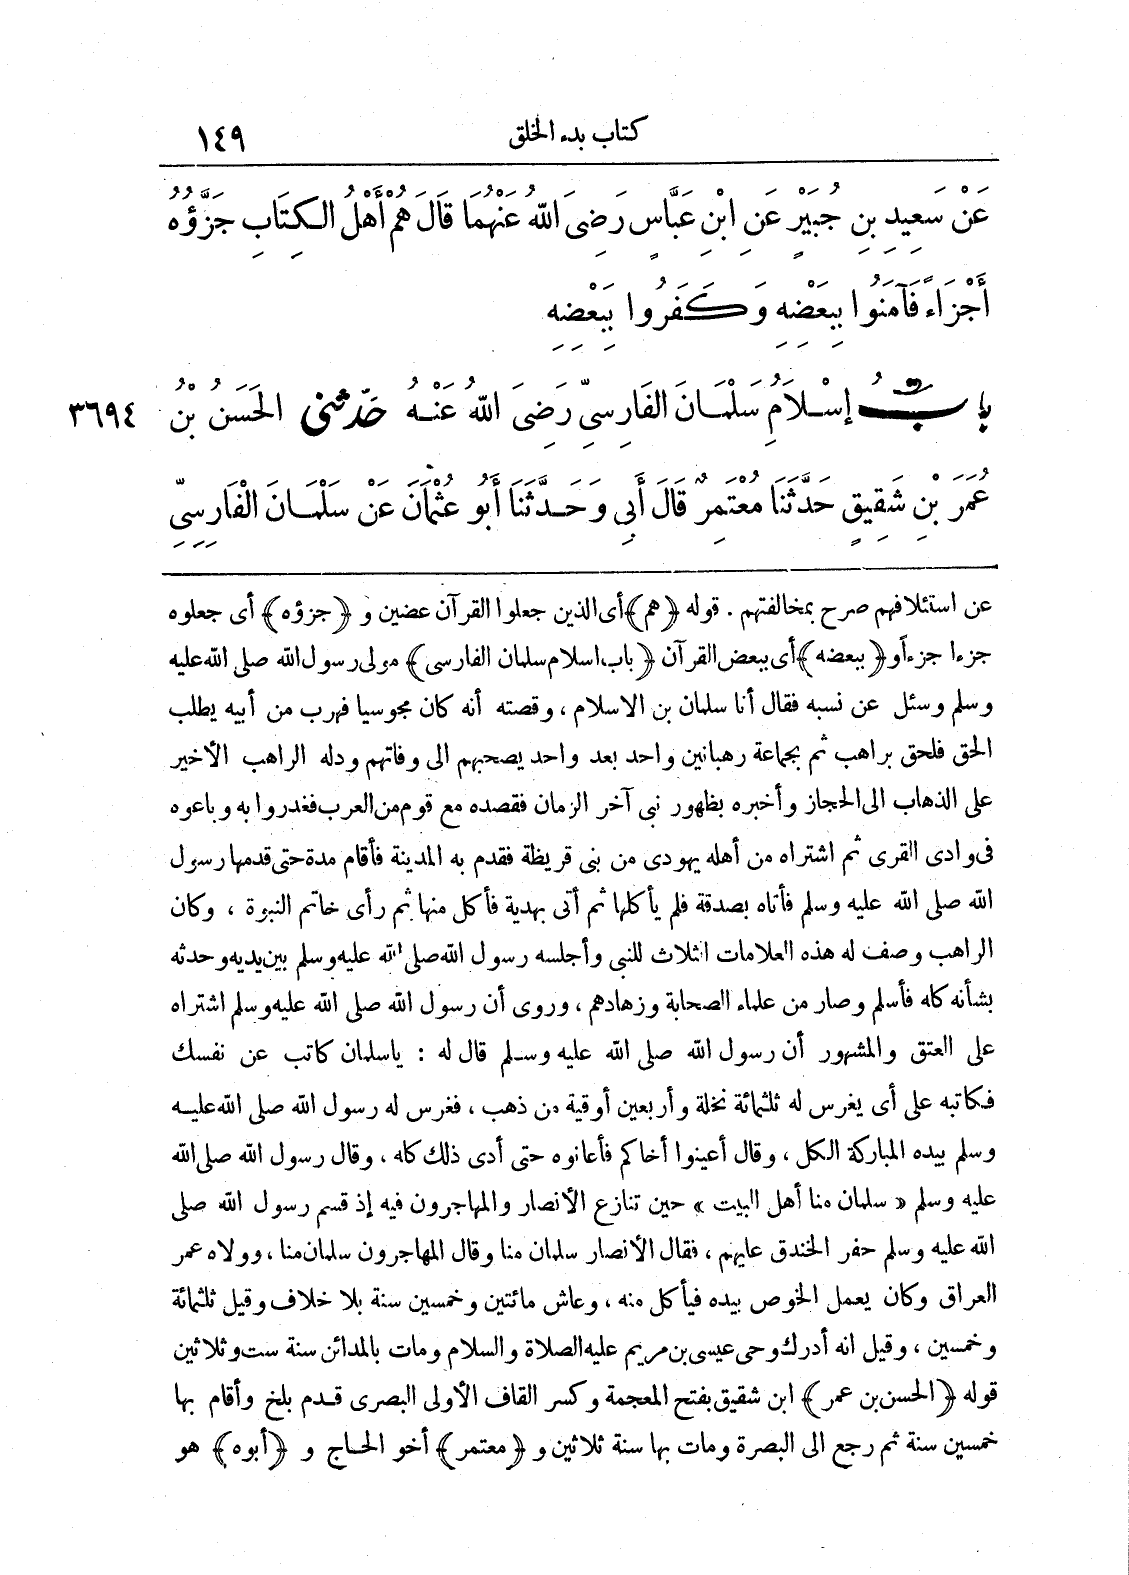 كتاب بدء الخلق ١٤٩
عَنْ سَعِيدِ بنِ جُبَيْرٍ عَنِ ابْنِ عَبَّاسٍ رَضِىَ اللهُ عَنْهُمَا قَالَ هُمْ أَهْلُ الكِتَابِ جَزَّؤُهُ
أَجْزَاءً فَآمَنُوا بِبَعْضِهِ وَكَفَرُوا بِبَعْضِهِ
بابُ إسْلَامِ سَلْمَانَ الفَارِسِىِّ رَضِىَ اللهُ عَنْهُ حَدَّثَنِى الحَسَنُ بْنُ ٣٦٩٤
عُمَرَ بْنِ شَقِيقٍ حَدَّثَنَا مُعْتَمِرٌ قَالَ أَبِى وَحَدَّثَنَا أَبُو عُثْمَانَ عَنْ سَلْمَانَ الْفَارِسِىِّ
عن استئلافهم صرح بمخالفتهم . قوله ﴿هم﴾ أى الذين جعلوا القرآن عضين و ﴿جزؤه﴾ أى جعلوه
جزءا جزءاً و﴿ببعضه﴾ أى ببعض القرآن ﴿باب اسلام سلمان الفارسى﴾ مولى رسول الله صلى الله عليه
وسلم وسئل عن نسبه فقال أنا سلمان بن الاسلام ، وقصته أنه كان مجوسيا فهرب من أبيه يطلب
الحق فلحق براهب ثم بجماعة رهبانين واحد بعد واحد يصحبهم الى وفاتهم ودله الراهب الأخير
على الذهاب الى الحجاز وأخبره بظهور نبى آخر الزمان فقصده مع قوم من العرب فغدروا به وباعوه
فى وادى القرى ثم اشتراه من أهله يهودى من بنى قريظة فقدم به المدينة فأقام مدة حتى قدمها رسول
الله صلى الله عليه وسلم فأتاه بصدقة فلم يأكلها ثم أتى بهدية فأكل منها ثم رأى خاتم النبوة ، وكان
الراهب وصف له هذه العلامات الثلاث للنبى وأجلسه رسول الله صلى الله عليه وسلم بين يديه وحدثه
بشأنه كله فأسلم وصار من علماء الصحابة وزهادهم ، وروى أن رسول الله صلى الله عليه وسلم اشتراه
على العتق والمشهور أن رسول الله صلى الله عليه وسلم قال له : ياسلمان كاتب عن نفسك
فكاتبه على أى يغرس له ثلثمائة نخلة وأربعين أوقية من ذهب ، فغرس له رسول الله صلى الله عليه
وسلم بيده المباركة الكل ، وقال أعينوا أخاكم فأعانوه حتى أدى ذلك كله ، وقال رسول الله صلى الله
عليه وسلم « سلمان منا أهل البيت » حين تنازع الأنصار والمهاجرون فيه إذ قسم رسول الله صلى
الله عليه وسلم حفر الخندق عليهم ، فقال الأنصار سلمان منا وقال المهاجرون سلمان منا ، وولاه عمر
العراق وكان يعمل الخوص بيده فيأكل منه ، وعاش مائتين وخمسين سنة بلا خلاف وقيل ثلثمائة
وخمسين ، وقيل انه أدرك وحى عيسى بن مريم عليه الصلاة والسلام ومات بالمدائن سنة ست وثلاثين
قوله ﴿الحسن بن عمر﴾ ابن شقيق بفتح المعجمة وكسر القاف الأولى البصرى قدم بلخ وأقام بها
خمسين سنة ثم رجع الى البصرة ومات بها سنة ثلاثين و ﴿معتمر﴾ أخو الحاج و ﴿أبوه﴾ هو